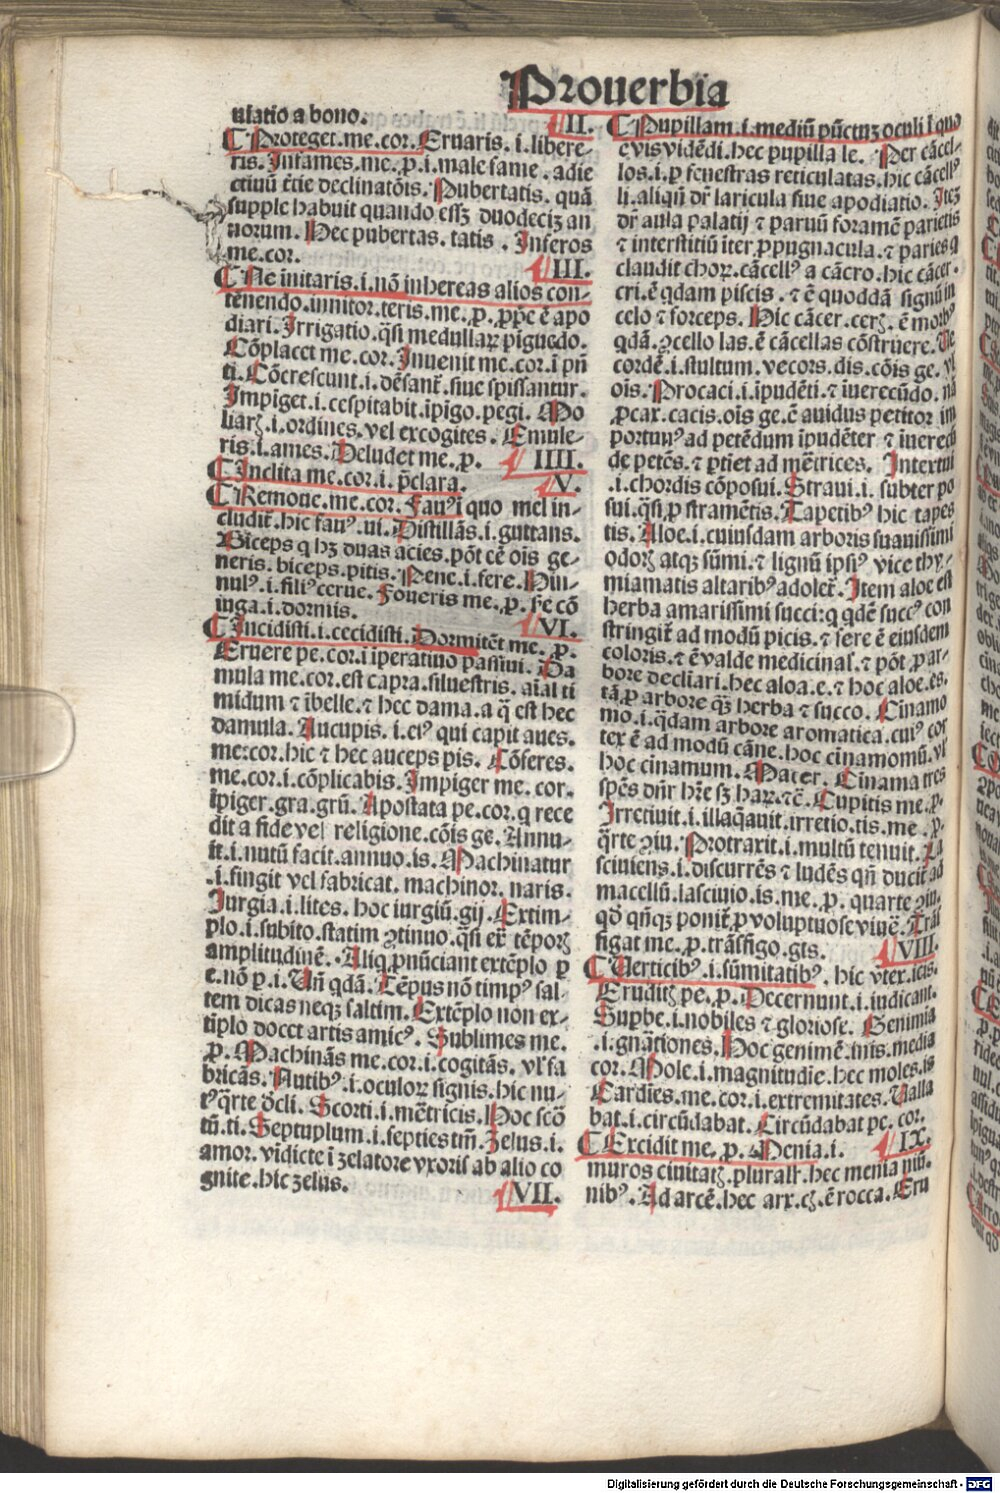 Prouerbia
ulatio a bono.
II.
Proteget.me.cor.Eruaris.i.libere-
ris.Infames.me.p.i.male fame.adie
ctiuū t̄tie declinatōis.Pubertatis.quā
supple habuit quando essꝫ duodecis an
norum.Hec pubertas.tatis.Inferos
me.cor.
III.
Ne initaris.i.nō inhereas alios con-
tenendo.innitor.teris.me.p.pp̄e ē apo
diari.Irrigatio.q̄si medullaꝝ piguedo.
Cōplacet me.cor.Inuenit me.cor.i pn̄
ti.Cōcrescunt.i.dēsant̄.siue spissantur.
Impiget.i.cespitabit.īpigo.pegi.Mo
liarꝫ.i.ordines.vel excogites.Emule-
ris.i.ames.Deludet me.p.
IIII.
Inclita me.cor.i.p̄clara.
V.
Remoue.me.cor.Fauꝰ i quo mel in-
cludit̄.hic fauꝰ.ui.Distillās.i.guttans.
Biceps q hꝫ duas acies.pōt eē ois ge-
neris.biceps.pitis.Pene.i.fere.Hin-
nulꝰ.i.filiꝰ cerue.Foueris me.p.se cō
iūga.i.dormis.
VI.
Incidisti.i.cecidisti.Dormitēt me.p.
Eruere pe.cor.i iperatiuo passiui.Da
mula me.cor.est capra.siluestris.aīal ti
midum ⁊ ībelle.⁊ hec dama.a q̄ est hec
damula.Aucupis.i.eiꝰ qui capit aues.
me:cor.hic ⁊ hec auceps pis.Cōferes.
me.cor.i.cōplicabis.Impiger me.cor.
īpiger.gra.grū.Apostata pe.cor.q rece
dit a fide vel religione.cōis ge.Annu-
it.i.nutū facit.annuo.is.Machinatur
.i.fingit vel fabricat.machinor.naris.
Iurgia.i.lites.hoc iurgiū.gij.Extim-
plo.i.subito.statim ꝯtinuo.q̄si ex̄ tēporꝫ
amplitudinē.Aliq pnūciant extēplo p
e.nō p i.Un̄ qdā.Tēpus nō timpꝰ sal-
tem dicas neqꝫ saltim.Extēplo non ex-
tīplo docet artis amicꝰ.Sublimes me.
p.Machinās me.cor.i.cogitās.vl̄ fa
bricās.Nutibꝰ.i.oculoꝝ signis.hic nu-
tꝰ q̄rte d̄cli.Scorti.i.mētricis.Hoc scō
tū.ti.Septuplum.i.septies tm̄.Zelus.i.
amor.vīdicte i zelatore vxoris ab alio co
gnite.hic zelus.
VII.
Pupillam.i.mediū pūctuꝫ oculi i quo
e vis vidēdi.hec pupilla le.Per cācel-
los.i.p fenestras reticulatas.hic cācellꝰ
li.aliqn̄ dr̄ laricula siue apodiatio.Iteꝫ
dr̄ aula palatij ⁊ paruū foramē parietis
⁊ interstitiū īter ppugnacula.⁊ paries q
claudit choꝝ.cācellꝰ a cācro.hic cācer.
cri.ē qdam piscis.⁊ ē quoddā signū in
celo ⁊ forceps.Hic cācer.cerꝫ.ē morbꝰ
qdā.ꝯcello las.ē cācellas cōstruere.Ue
cordē.i.stultum.vecors.dis.cōis ge.vl
ois.Procaci.i.ipudēti.⁊ īuerecūdo.nā
pcax.cacis.ois ge.ē auidus petitor im
portunꝰ ad petēdum ipudēter ⁊ inerecū
de petēs.⁊ ptiet ad mētrices.Intexui
.i.chordis cōposui.Straui.i.subter po
sui.q̄si p stramētis.Tapetibꝰ hic tapes
tis.Aloe.i.cuiusdam arboris suauissimi
odorꝫ atqꝫ sūmi.⁊ lignū ipsiꝰ vice thy-
miamatis altaribꝰ adolet̄.Item aloe est
herba amarissimi succi:q qdē succꝰ con
stringit̄ ad modū picis.⁊ fere ē eiusdem
coloris.⁊ ē valde medicinal̄.⁊ pōt p ar-
bore declīari.hec aloa.e.⁊ hoc aloe.es.
tā.p arbore qꝫ herba ⁊ succo.Cinamo
mo.i.qdam arbore aromatica.cuiꝰ cor
tex ē ad modū cāne.hoc cinamomū.vl̄
hoc cinamum.Macer.Cinama tres
spēs dn̄r hr̄e sꝫ haꝝ.⁊c̄.Cupitis me.p.
Irretiuit.i.illaq̄auit.irretio.tis.me.p.
q̄rte ꝯiu.Protraxit.i.multū tenuit.La
sciuiens.i.discurrēs ⁊ ludēs qn̄ ducit̄ ad
macellū.lasciuio.is.me.p.quarte ꝯiu.
qd̄ qn̄qꝫ ponit̄ p voluptuose viuē.Tras
figat me.p.trāsfigo.gis.
VIII.
Uerticibꝰ.i.sūmitatibꝰ.hic v̄tex.icis.
Eruditꝫ pe.p.Decernunt.i.iudicant.
Supbe.i.nobiles ⁊ gloriose.Genimia
.i.gnātiones.Hoc genimē.inis.media
cor.Mole.i.magnitudie.hec moles.is
Cardies.me.cor.i.extremitates.Ualla
bat.i.circūdabat.Circūdabat pe.cor.
IX.
Excidit me.p.Menia.i.
muros ciuitatꝫ.pluralr̄.hec menia niū.
nibꝰ.Ad arcē.hec arx.cꝫ.ē rocca.Eru
Digitalisierung gefördert durch die Deutsche Forschungsgemeinschaft - DFG